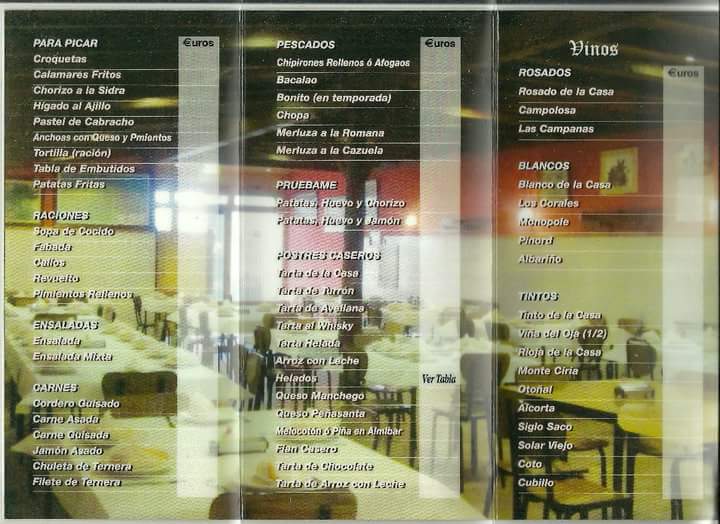 PARA PICAR
€uros
Croquetas
Calamares Fritos
Chorizo a la Sidra
Hígado al Ajillo
Pastel de Cabracho
Anchoas con Queso y Pmientos
Tortilla (ración)
Tabla de Embutidos
Patatas Fritas
RACIONES
Sopa de Cocido
Fabada
Callos
Revuelto
Pimientos Rellenos
ENSALADAS
Ensalada
Ensalada Mixta
CARNES
Cordero Guisado
Carne Asada
Carne Guisada
Jamón Asado
Chuleta de Ternera
Filete de Ternera
PESCADOS
€uros
Chipirones Rellenos ó Afogaos
Bacalao
Bonito (en temporada)
Chopa
Merluza a la Romana
Merluza a la Cazuela
PRUEBAME
Patatas, Huevo y Chorizo
Patatas, Huevo y Jamón
POSTRES CASEROS
Tarta de la Casa
Tarta de Turrón
Tarta de Avellana
Tarta al Whisky
Tarta Helada
Arroz con Leche
Helados
Ver Tabla
Queso Manchego
Queso Peñasanta
Melocotón ó Piña en Almibar
Flan Casero
Tarta de Chocolate
Tarta de Arroz con Leche
Vinos
ROSADOS
€uros
Rosado de la Casa
Campolosa
Las Campanas
BLANCOS
Blanco de la Casa
Los Corales
Monopole
Pinord
Albariño
TINTOS
Tinto de la Casa
Viña del Oja (1/2)
Rioja de la Casa
Monte Ciria
Otoñal
Alcorta
Siglo Saco
Solar Viejo
Coto
Cubillo